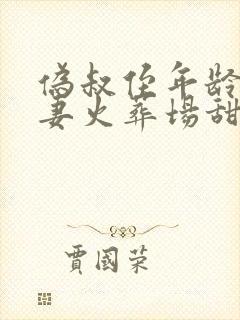 偽叔侄年龄
妻火葬場甜
賈國荣